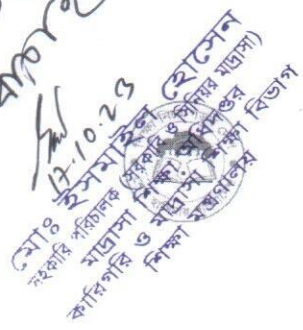 17.10.23
মোঃ ইসমাইল হোসেন
সহকারি পরিচালক (সরকারি ও সিনিয়র মাদ্রাসা)
মাদ্রাসা শিক্ষা অধিদপ্তর
কারিগরি ও মাদ্রাসা শিক্ষা বিভাগ
শিক্ষা মন্ত্রণালয়